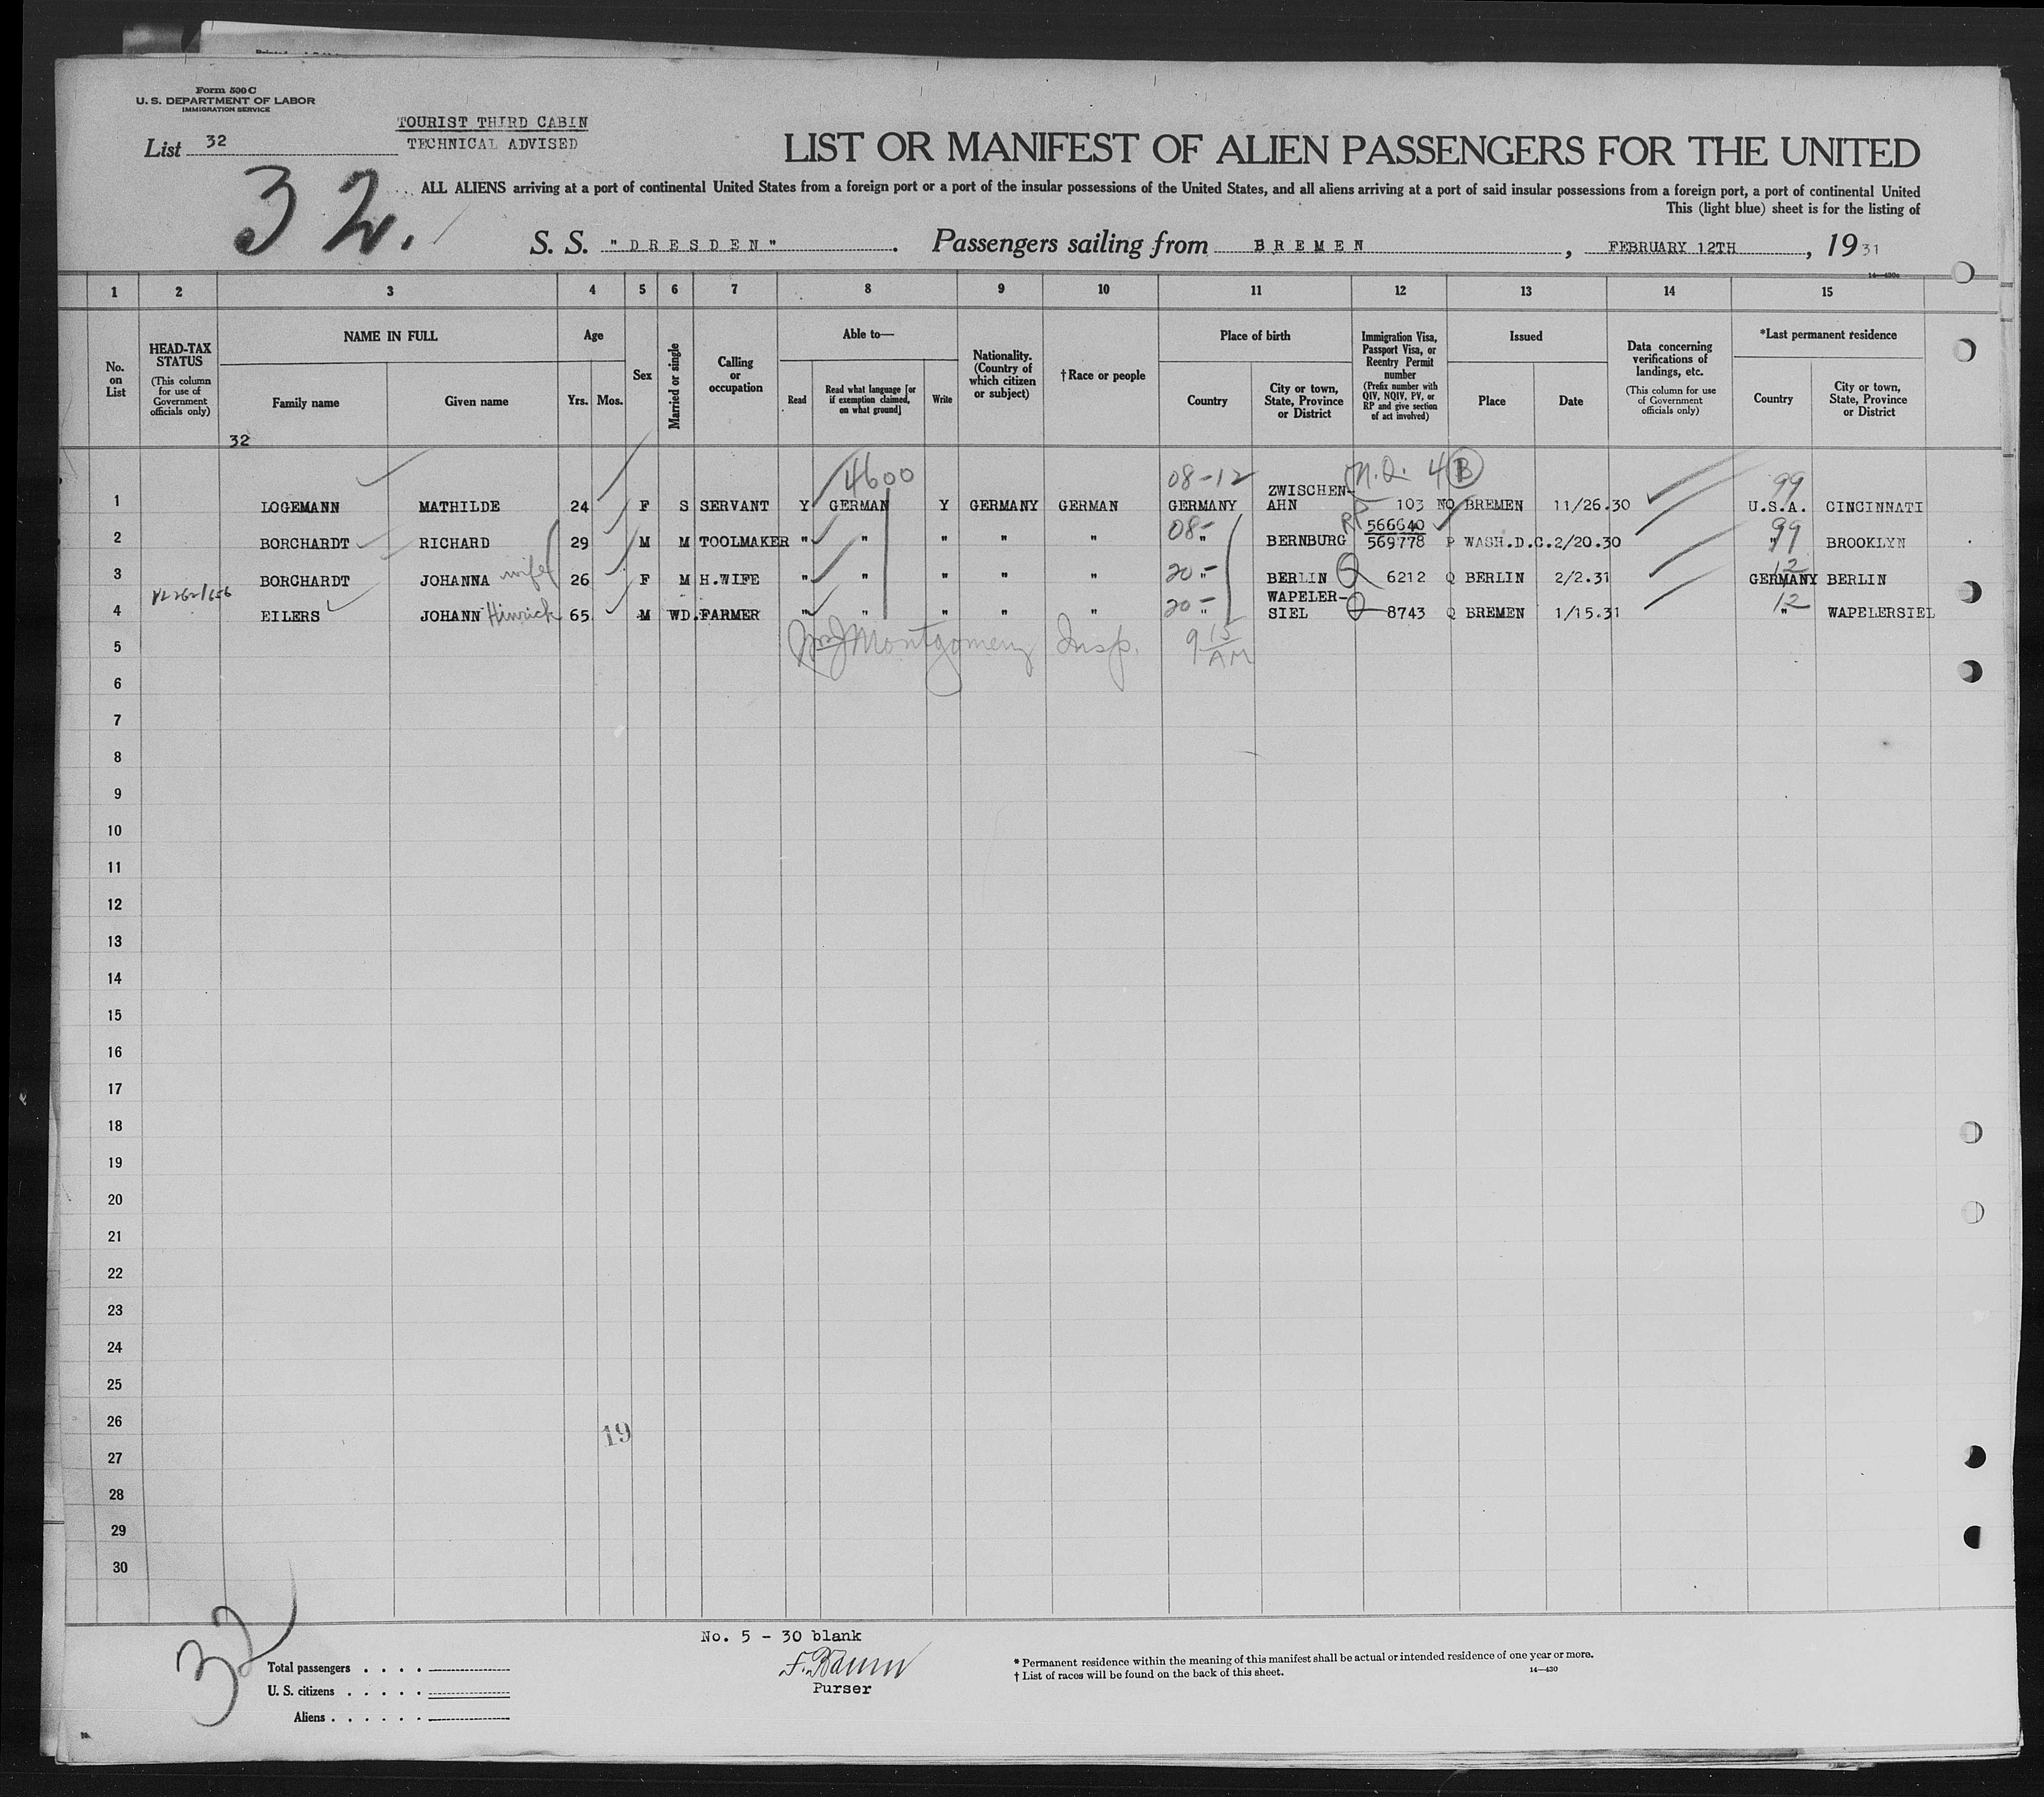 Form 500 C
U. S. DEPARTMENT OF LABOR
IMMIGRATION SERVICE
List 32
TOURIST THIRD CABIN
TECHNICAL ADVISED
32.
LIST OR MANIFEST OF ALIEN PASSENGERS FOR THE UNITED
ALL ALIENS arriving at a port of continental United States from a foreign port or a port of the insular possessions of the United States, and all aliens arriving at a port of said insular possessions from a foreign port, a port of continental United
This (light blue) sheet is for the listing of
S. S. "DRESDEN". Passengers sailing from BREMEN, FEBRUARY 12TH, 1931
1 2 3 4 5 6 7 8 9 10 11 12 13 14 15
No. on List
HEAD-TAX STATUS
(This column for use of Government officials only)
NAME IN FULL
Family name
Given name
Age
Yrs.
Mos.
Sex
Married or single
Calling or occupation
Able to—
Read
Read what language [or if exemption claimed, on what ground]
Write
Nationality. (Country of which citizen or subject)
†Race or people
Place of birth
Country
City or town, State, Province or District
Immigration Visa, Passport Visa, or Reentry Permit number
(Prefix number with QIV, NQIV, PV, or RP and give section of act involved)
Issued
Place
Date
Data concerning verifications of landings, etc.
(This column for use of Government officials only)
*Last permanent residence
Country
City or town, State, Province or District
32
4600 08-12 N.Q. 4 B 99
1 LOGEMANN MATHILDE 24 F S SERVANT Y GERMAN Y GERMANY GERMAN GERMANY ZWISCHEN-AHN 103 NQ BREMEN 11/26.30 U.S.A. CINCINNATI
2 BORCHARDT RICHARD 29 M M TOOLMAKER " " " " " 08- " BERNBURG RP 566640 569778 P WASH.D.C. 2/20.30 " 99 BROOKLYN
3 BORCHARDT JOHANNA wife 26 F M H.WIFE " " " " " 20- " BERLIN Q 6212 Q BERLIN 2/2.31 GERMANY 12 BERLIN
4 EILERS JOHANN Hinrich 65 M WD. FARMER " " " " " 20- " WAPELER-SIEL Q 8743 Q BREMEN 1/15.31 " 12 WAPELERSIEL
5 Montgomery Insp. 9 15 AM
6
7
8
9
10
11
12
13
14
15
16
17
18
19
20
21
22
23
24
25
26
19
27
28
29
30
32
No. 5 - 30 blank
F. Baum
Purser
Total passengers
U. S. citizens
Aliens
* Permanent residence within the meaning of this manifest shall be actual or intended residence of one year or more.
† List of races will be found on the back of this sheet.
14—430